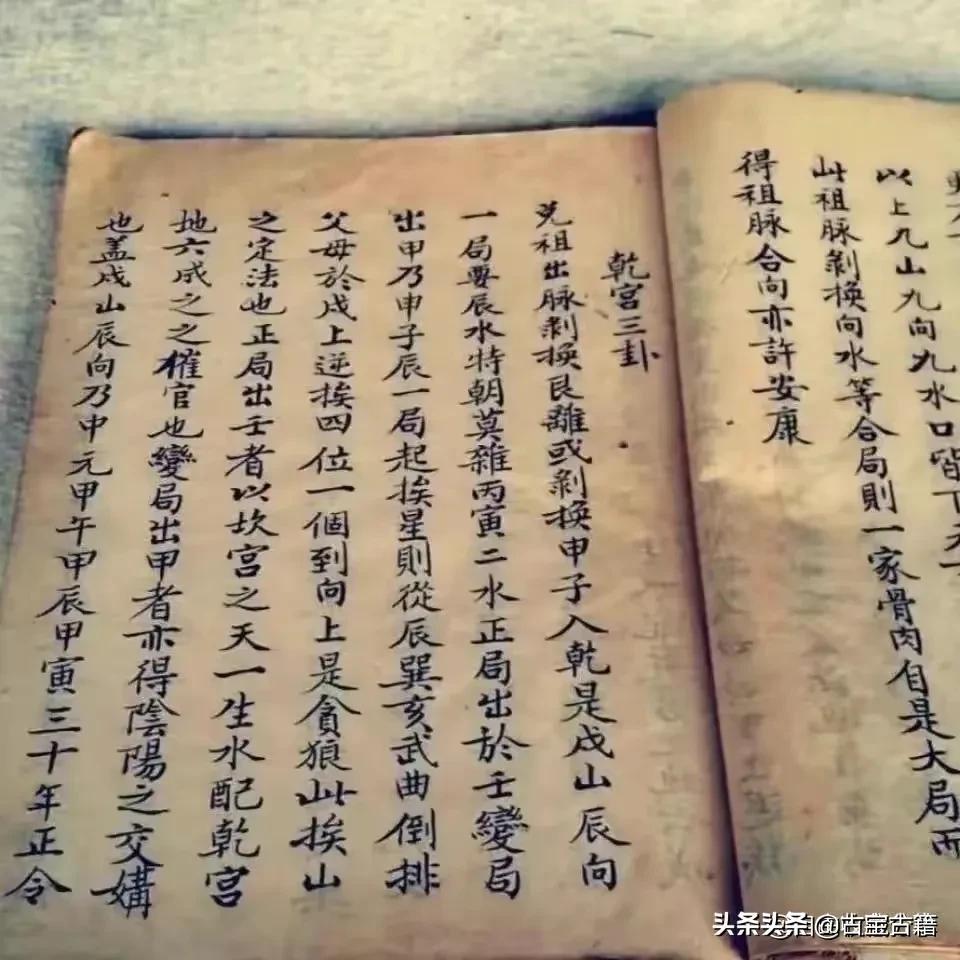 以上九山九向九水口皆下元
此祖脉剝換向水等合局則一家骨肉自是大局而
得祖脉合向亦許安康
乾宮三卦
兑祖出脉剝換艮離或剝換申子入乾是戌山辰向
一局要辰水特朝莫雜丙寅二水正局出於壬變局
出甲乃申子辰一局起挨星則從辰巽亥武曲倒排
父母於戌上逆挨四位一個到向上是貪狼此挨山
之定法也正局出壬者以坎宮之天一生水配乾宮
地六成之之催官也變局出甲者亦得陰陽之交媾
也盖戌山辰向乃中元甲午甲辰甲寅三十年正令
头条头条@古宝古籍